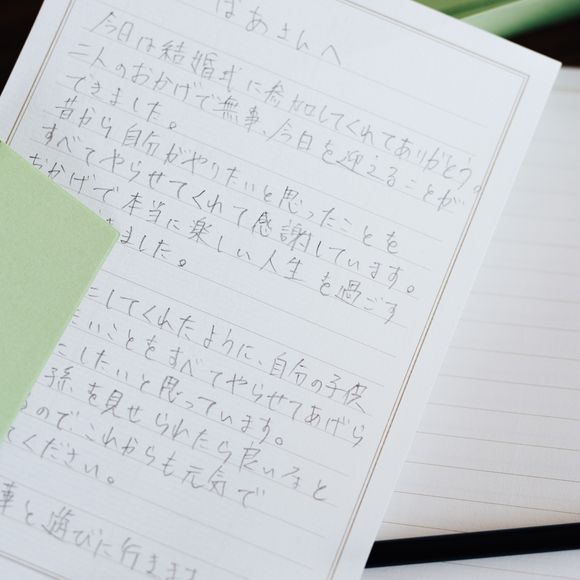 ばあさんへ
今日は結婚式に参加してくれてありがとう。
二人のおかげで無事、今日を迎えることが
できました。
昔から自分がやりたいと思ったことを
すべてやらせてくれて感謝しています。
おかげで本当に楽しい人生を過ごす
きました。
にしてくれたように、自分の子供
たいことをすべてやらせてあげら
にしたいと思っています。
孫を見せられたら良いなと
るので、これからも元気で
てください。
事と遊びに行きます